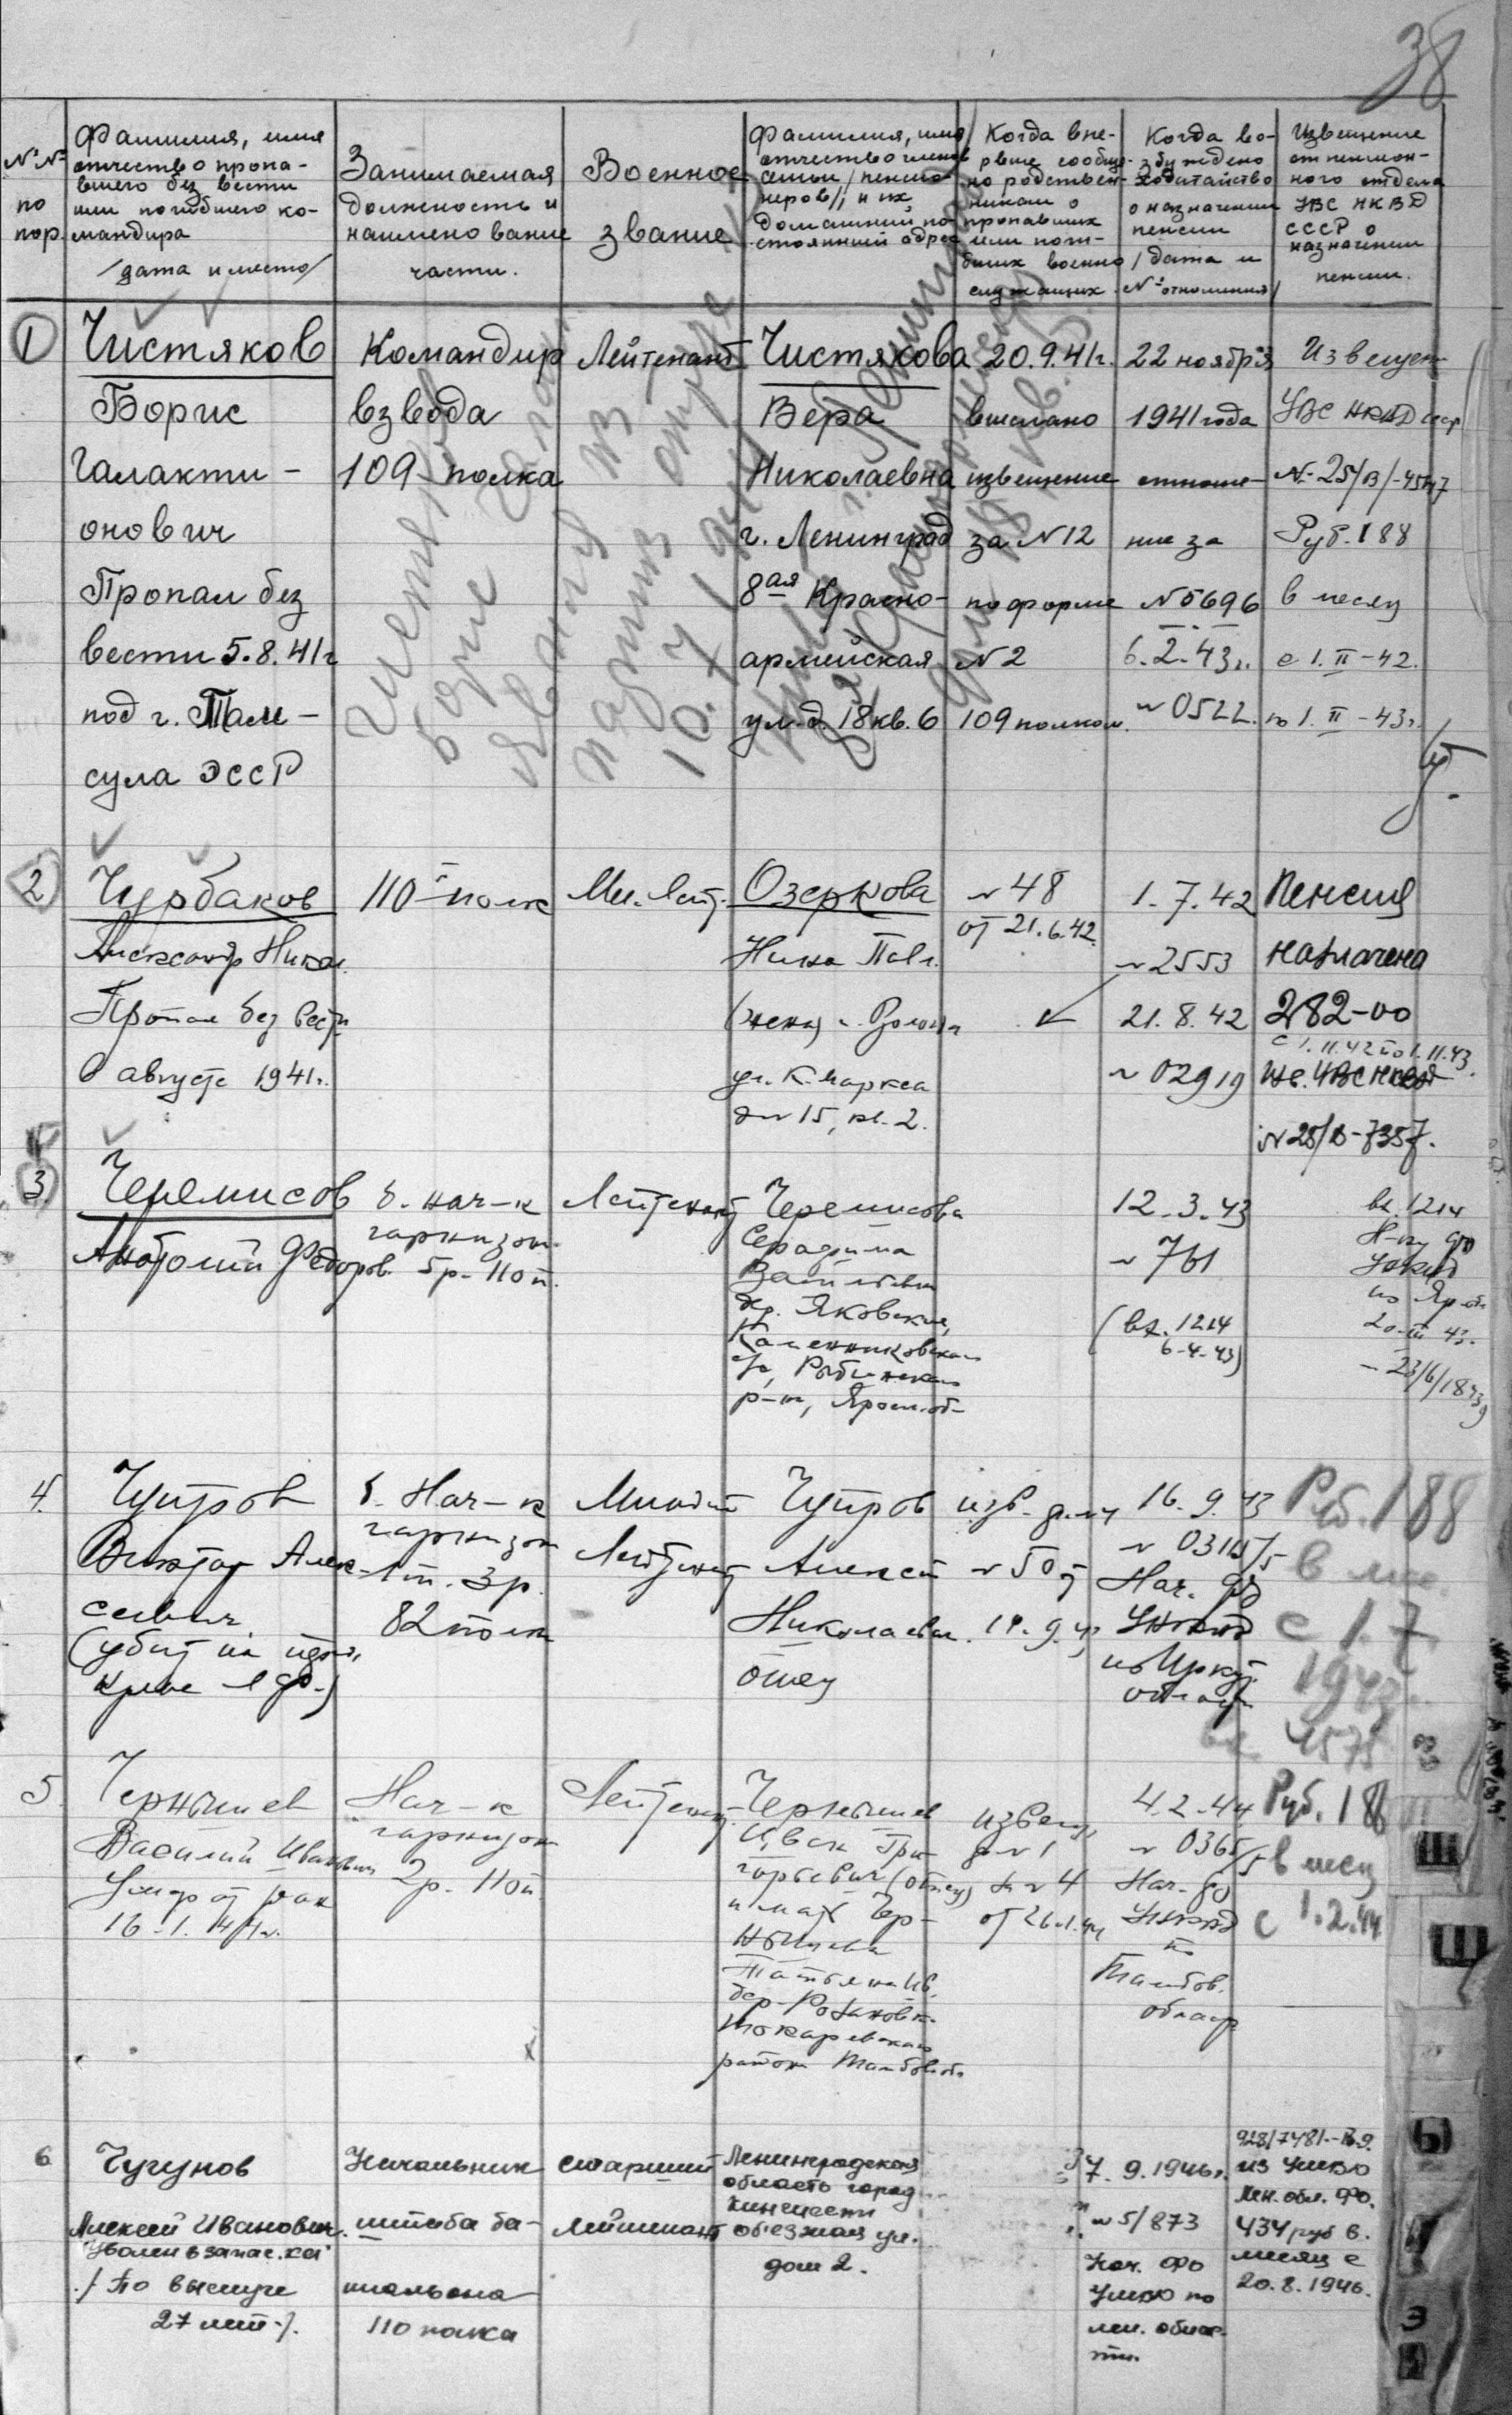 38
№№ по пор.
Фамилия, имя
отчество пропа-
вшего без вести
или погибшего ко-
мандира
/дата и место/
Занимаемая
должность и
наименование
части.
Военное
звание
Фамилия, имя
отчество членов
семьи /пенсио-
неров/, и их
домашний по-
стоянный адрес
Когда впе-
рвые сообще-
но родствен-
никам о
пропавших
или поги-
бших военно
служащих
Когда во-
збуждено
ходатайство
о назначении
пенсии
/дата и
№ отношения/
Извещение
от пенсион-
ного отдела
УВС НКВД
СССР о
назначении
пенсии.
1
Чистяков
Борис
Галакти-
онович
Пропал без
вести 5.8.41г
под г. Там-
сула ЭССР
Командир
взвода
109 полка
Лейтенант
Чистякова
Вера
Николаевна
г. Ленинград
8ая Красно-
армейская
ул. д. 18 кв. 6
20.9.41г.
выслано
извещение
за N12
по форме
N2
109 полком.
22 ноября
1941 года
отноше-
ние за
N5696
6.2.43г.
N 0522.
Извещен
УВС НКВД СССР
№-25/В/-4547
Руб. 188
в месяц
с 1.II-42.
по 1.II-43г.
10.7
2
Чурбаков
Александр Никол.
Пропал без вести
в августе 1941г.
110 полк
Мл. Лейт.
Озеркова
Нина Павл.
(жена) г. Вологда
ул. К. Маркса
д N 15, кв. 2.
N 48
от 21.6.42.
1.7.42
N 2553
21.8.42
N 02919
Пенсия
назначена
282-00
с 1.II.42 по 1.II.43.
Из. УВС НКВД
N 25/В-7357.
3
Черемисов
Анатолий Федоров.
б. нач-к
гарнизон.
5р. 110 п.
Лейтенант
Черемисова
Серафима
Васильевна
др. Яковское,
Каменниковского
с/с, Рыбинского
р-на, Яросл. об-
12.3.43
N 761
(вх. 1214
6-4-43)
вх. 1214
Н-ку ФО
УНКВД
по Яр. об.
20.III 43.
4.
Чупров
Виктор Алек-
сеевич
(убит на
б. Нач-к
гарнизон
1 п. 3р.
82 полк
Младш
Лейтенант
Чупров
Алексей
Николаевич.
отец
изв. ф. N 4
N 50 от
14.9.43
16.9.43
N 03115/5
Нач. ФО
УНКВД
по Иркут.
област
Руб. 188
в мес.
с 1.7.
1943г.
вх. 4575
5
Чернышев
Василий Иванович
Умер от ран
16.1.44г.
Нач-к
гарнизон
2р. 110п.
Лейтенант
Чернышев
Иван Гри-
горьевич (отец)
и мать Чер-
нышева
Татьяна Ив.
дер. Розановк.
Токаревского
район Тамбов. об.
извещ.
ф. N 1
за N 4
от 26.1.44
4.2.44
N 0365/5
Нач. ФО
УНКВД
по
Тамбов.
област
Руб. 188
в месяц
с 1.2.44
6
Чугунов
Алексей Иванович.
Уволен в запас. ка
/по выслуге
27 лет/.
Начальник
штаба ба-
тальона
110 полка
старший
лейтенант
Ленинградская
область город
Кингисепп
объезжая ул.
дом 2.
7.9.1946г.
N 5/873
Нач. ФО
УМВД по
лен. облас-
ти.
928/7481.-
из УМВД
Лен. обл. ФО.
434 руб в.
месяц с
20.8.1946.